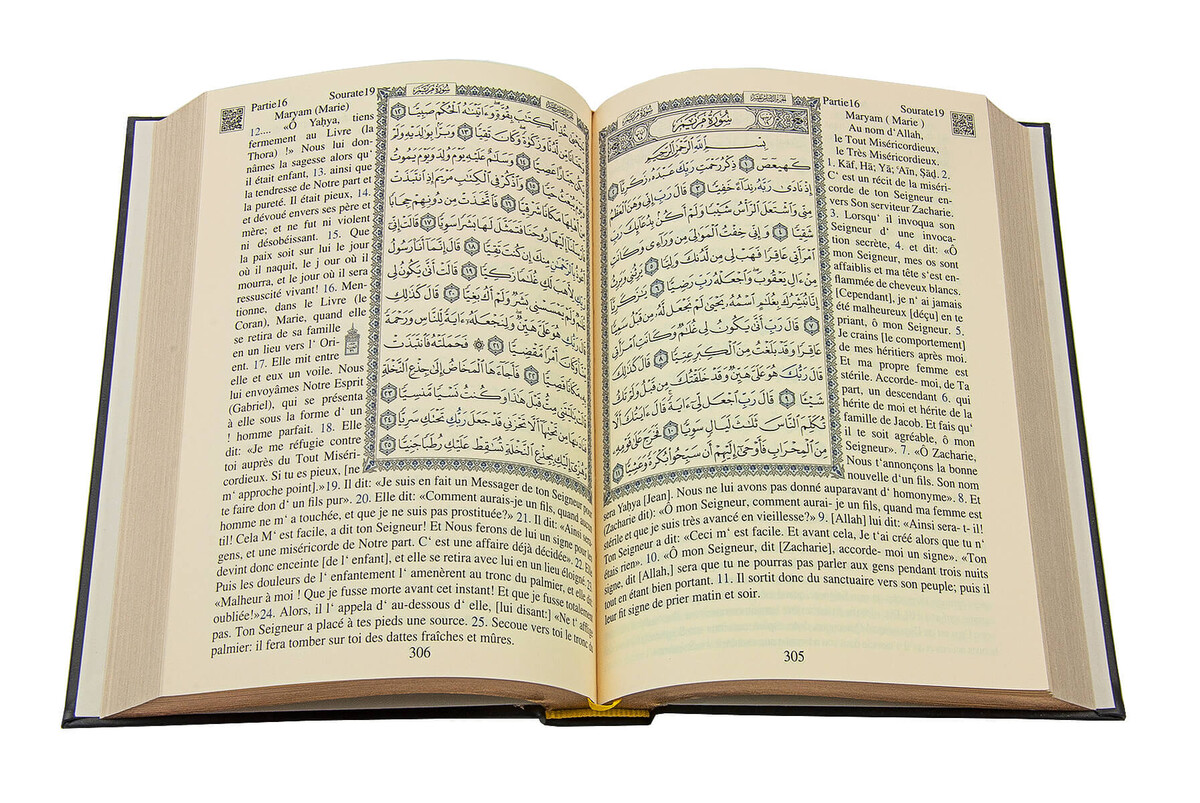 Partie16 Sourate19
Maryam ( Marie )
Au nom d'Allah,
le Tout Miséricordieux,
le Très Miséricordieux.
1. Kāf, Hā; Yā; 'Aīn, Ṣād. 2.
C' est un récit de la miséri-
corde de ton Seigneur en-
vers Son serviteur Zacharie.
3. Lorsqu' il invoqua son
Seigneur d' une invoca-
tion secrète, 4. et dit: «Ô
mon Seigneur, mes os sont
affaiblis et ma tête s'est en-
flammée de cheveux blancs.
[Cependant], je n' ai jamais
été malheureux [déçu] en te
priant, ô mon Seigneur. 5.
Je crains [le comportement]
de mes héritiers après moi.
Et ma propre femme est
stérile. Accorde- moi, de Ta
part, un descendant 6. qui
hérite de moi et hérite de la
famille de Jacob. Et fais qu'
il te soit agréable, ô mon
Seigneur». 7. «Ô Zacharie,
Nous t'annonçons la bonne
nouvelle d'un fils. Son nom
sera Yaḥya [Jean]. Nous ne lui avons pas donné auparavant d' homonyme». 8. Et
(Zacharie dit): «Ô mon Seigneur, comment aurai- je un fils, quand ma femme est
stérile et que je suis très avancé en vieillesse?» 9. [Allah] lui dit: «Ainsi sera- t- il!
Ton Seigneur a dit: «Ceci m' est facile. Et avant cela, Je t'ai créé alors que tu n'
étais rien». 10. «Ô mon Seigneur, dit [Zacharie], accorde- moi un signe». «Ton
signe, dit [Allah,] sera que tu ne pourras pas parler aux gens pendant trois nuits
tout en étant bien portant. 11. Il sortit donc du sanctuaire vers son peuple; puis il
leur fit signe de prier matin et soir.
سُورَةُ مَرْيَمَ
بِسْمِ اللَّهِ الرَّحْمَٰنِ الرَّحِيمِ
كهيعص ١ ذِكْرُ رَحْمَتِ رَبِّكَ عَبْدَهُ زَكَرِيَّا ٢
إِذْ نَادَىٰ رَبَّهُ نِدَاءً خَفِيًّا ٣ قَالَ رَبِّ إِنِّي وَهَنَ الْعَظْمُ
مِنِّي وَاشْتَعَلَ الرَّأْسُ شَيْبًا وَلَمْ أَكُنْ بِدُعَائِكَ رَبِّ
شَقِيًّا ٤ وَإِنِّي خِفْتُ الْمَوَالِيَ مِنْ وَرَاءِى وَكَانَتِ
امْرَأَتِي عَاقِرًا فَهَبْ لِي مِنْ لَدُنْكَ وَلِيًّا ٥ يَرِثُنِي وَيَرِثُ
مِنْ ءَالِ يَعْقُوبَ وَاجْعَلْهُ رَبِّ رَضِيًّا ٦ يَٰزَكَرِيَّا
إِنَّا نُبَشِّرُكَ بِغُلَٰمٍ اسْمُهُ يَحْيَىٰ لَمْ نَجْعَلْ لَهُ مِنْ قَبْلُ سَمِيًّا
٧ قَالَ رَبِّ أَنَّىٰ يَكُونُ لِي غُلَٰمٌ وَكَانَتِ امْرَأَتِي
عَاقِرًا وَقَدْ بَلَغْتُ مِنَ الْكِبَرِ عِتِيًّا ٨ قَالَ كَذَٰلِكَ
قَالَ رَبُّكَ هُوَ عَلَيَّ هَيِّنٌ وَقَدْ خَلَقْتُكَ مِنْ قَبْلُ وَلَمْ تَكُ
شَيْئًا ٩ قَالَ رَبِّ اجْعَلْ لِي ءَايَةً قَالَ ءَايَتُكَ أَلَّا
تُكَلِّمَ النَّاسَ ثَلَٰثَ لَيَالٍ سَوِيًّا ١٠ فَخَرَجَ عَلَىٰ قَوْمِهِ
مِنَ الْمِحْرَابِ فَأَوْحَىٰ إِلَيْهِمْ أَنْ سَبِّحُوا بُكْرَةً وَعَشِيًّا ١١
305
Partie16 Sourate19
Maryam (Marie)
12.... «Ô Yahya, tiens
fermement au Livre (la
Thora) !» Nous lui don-
nâmes la sagesse alors qu'
il était enfant, 13. ainsi que
la tendresse de Notre part et
la pureté. Il était pieux, 14.
et dévoué envers ses père et
mère; et ne fut ni violent
ni désobéissant. 15. Que
la paix soit sur lui le jour
où il naquit, le j our où il
mourra, et le jour où il sera
ressuscité vivant! 16. Men-
tionne, dans le Livre (le
Coran), Marie, quand elle
se retira de sa famille
en un lieu vers l' Ori-
ent. 17. Elle mit entre
elle et eux un voile. Nous
lui envoyâmes Notre Esprit
(Gabriel), qui se présenta
à elle sous la forme d' un
! homme parfait. 18. Elle
dit: «Je me réfugie contre
toi auprès du Tout Miséri-
cordieux. Si tu es pieux, [ne
m' approche point].»19. Il dit: «Je suis en fait un Messager de ton Seigneur pour
te faire don d' un fils pur». 20. Elle dit: «Comment aurais-je un fils, quand aucun
homme ne m' a touchée, et que je ne suis pas prostituée?» 21. Il dit: «Ainsi sera-
til! Cela M' est facile, a dit ton Seigneur! Et Nous ferons de lui un signe pour les
gens, et une miséricorde de Notre part. C' est une affaire déjà décidée». 22. Elle
devint donc enceinte [de l' enfant], et elle se retira avec lui en un lieu éloigné.
Puis les douleurs de l' enfantement l' amenèrent au tronc du palmier, et elle dit:
«Malheur à moi ! Que je fusse morte avant cet instant! Et que je fusse totalement
oubliée!»24. Alors, il l' appela d' au-dessous d' elle, [lui disant:] «Ne t' afflige
pas. Ton Seigneur a placé à tes pieds une source. 25. Secoue vers toi le tronc du
palmier: il fera tomber sur toi des dattes fraîches et mûres.
سُورَةُ مَرْيَمَ
الْكِتَٰبَ بِقُوَّةٍ وَءَاتَيْنَٰهُ الْحُكْمَ صَبِيًّا ١٢
مِنْ لَدُنَّا وَزَكَوٰةً وَكَانَ تَقِيًّا ١٣ وَبَرًّا بِوَٰلِدَيْهِ وَلَمْ
عَصِيًّا ١٤ وَسَلَٰمٌ عَلَيْهِ يَوْمَ وُلِدَ وَيَوْمَ يَمُوتُ
١٥ وَاذْكُرْ فِي الْكِتَٰبِ مَرْيَمَ إِذِ انْتَبَذَتْ
أَهْلِهَا مَكَانًا شَرْقِيًّا ١٦ فَاتَّخَذَتْ مِنْ دُونِهِمْ حِجَابًا
إِلَيْهَا رُوحَنَا فَتَمَثَّلَ لَهَا بَشَرًا سَوِيًّا ١٧ قَالَتْ إِنِّي
مِنْكَ إِنْ كُنْتَ تَقِيًّا ١٨ قَالَ إِنَّمَا أَنَا رَسُولُ
لِأَهَبَ لَكِ غُلَٰمًا زَكِيًّا ١٩ قَالَتْ أَنَّىٰ يَكُونُ لِي
وَلَمْ يَمْسَسْنِي بَشَرٌ وَلَمْ أَكُ بَغِيًّا ٢٠ قَالَ كَذَٰلِكِ
هُوَ عَلَيَّ هَيِّنٌ وَلِنَجْعَلَهُ ءَايَةً لِلنَّاسِ وَرَحْمَةً
وَكَانَ أَمْرًا مَقْضِيًّا ٢١ فَحَمَلَتْهُ فَانْتَبَذَتْ
مَكَانًا قَصِيًّا ٢٢ فَأَجَاءَهَا الْمَخَاضُ إِلَىٰ جِذْعِ النَّخْلَةِ
مِتُّ قَبْلَ هَٰذَا وَكُنْتُ نَسْيًا مَنْسِيًّا ٢٣
مِنْ تَحْتِهَا أَلَّا تَحْزَنِي قَدْ جَعَلَ رَبُّكِ تَحْتَكِ سَرِيًّا ٢٤
إِلَيْكِ بِجِذْعِ النَّخْلَةِ تُسَٰقِطْ عَلَيْكِ رُطَبًا جَنِيًّا ٢٥
306